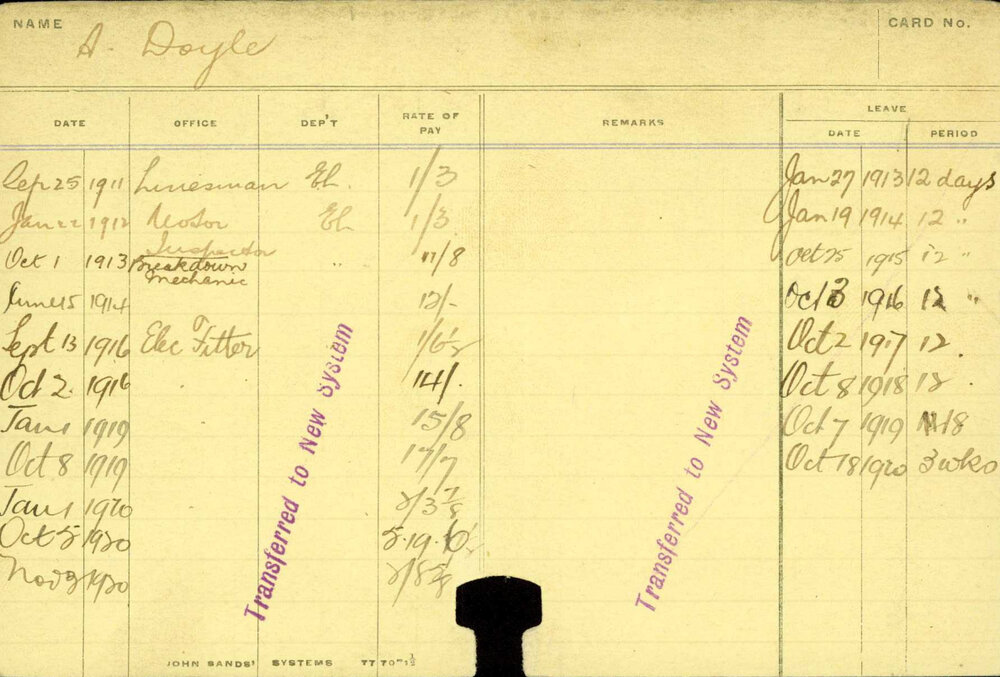 NAME A. Doyle CARD No.
LEAVE
DATE OFFICE DEP'T RATE OF PAY REMARKS DATE PERIOD
Sep 25 1911 Linesman El. 1/3 Jan 27 1913 12 days
Jan 22 1912 Motor El. 1/3 Jan 19 1914 12 "
Inspector
Oct 1 1913 Breakdown " 11/8 Oct 25 1915 12 "
Mechanic
June 15 1914 12/- Oct 3 1916 12 "
Sept 13 1916 Elec Fitter Oct 2 1917 12
Oct 2 1916 14/. Oct 8 1918 18
Jan 1 1919 15/8 Oct 7 1919 18
Oct 8 1919 17/7 Oct 18 1920 3 wks
Jan 1 1920 2/3 7/8
Oct 5 1920 5.19.
Nov 1920
Transferred to New System
Transferred to New System
JOHN SANDS' SYSTEMS